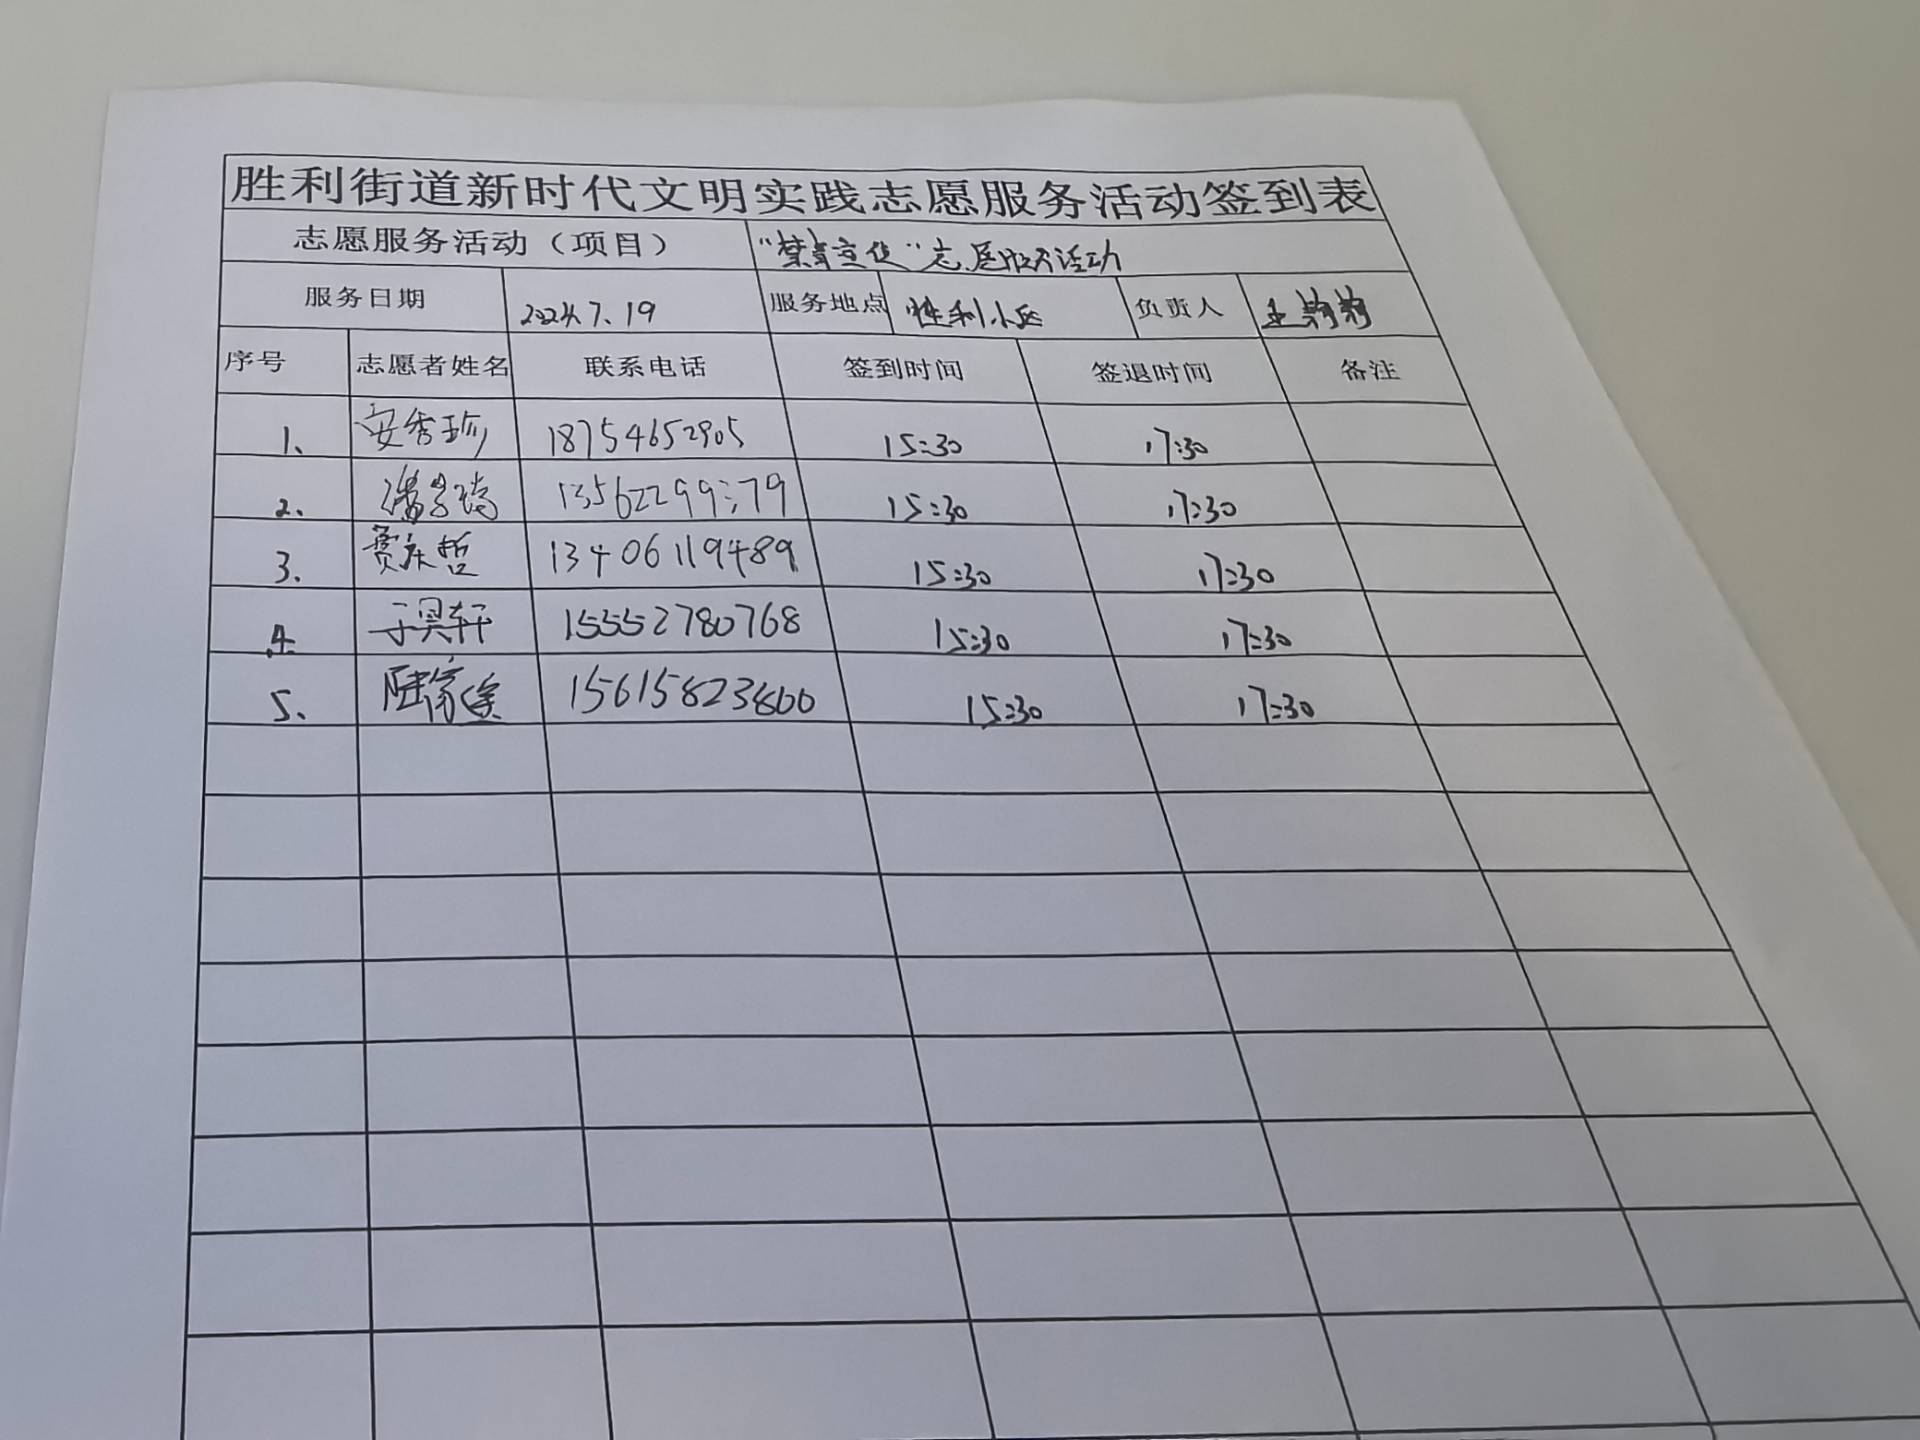 胜利街道新时代文明实践志愿服务活动签到表
志愿服务活动（项目） “禁毒宣传”志愿服务活动
服务日期 2024.7.19 服务地点 胜利小区 负责人 王
序号 志愿者姓名 联系电话 签到时间 签退时间 备注
1、 安秀珍 18754652905 15:30 17:30
2、 潘 15:30 17:30
3、 贾庆哲 13406119489 15:30 17:30
4、 于昊轩 15552780768 15:30 17:30
5、 陆家 15615823800 15:30 17:30